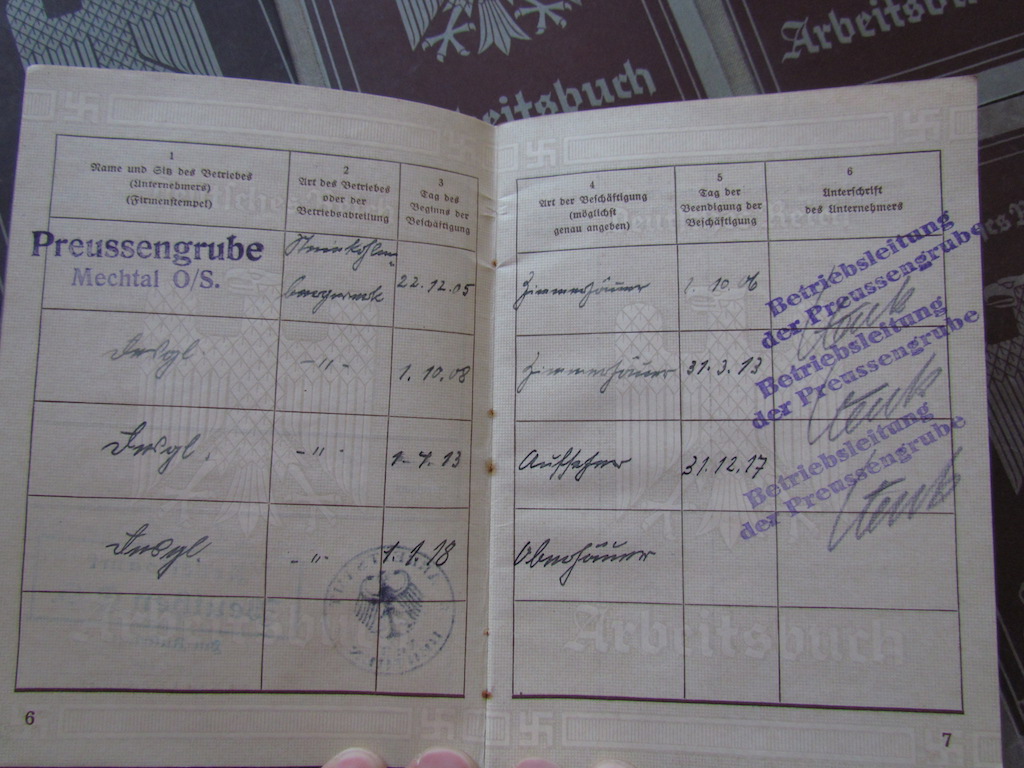 Arbeitsbuch
Arbeitsbuch
1
Name und Sitz des Betriebes
(Unternehmers)
(Firmenstempel)
2
Art des Betriebes
oder der
Betriebsabteilung
3
Tag des
Beginns der
Beschäftigung
4
Art der Beschäftigung
(möglichst
genau angeben)
5
Tag der
Beendigung der
Beschäftigung
6
Unterschrift
des Unternehmers
Preussengrube
Mechtal O/S.
Steinkohlen-
bergwerk
22.12.05
Zimmerhäuer
1. 10. 06
Betriebsleitung
der Preussengrube
Desgl.
-"-
1. 10. 08
Zimmerhäuer
31. 3. 13
Betriebsleitung
der Preussengrube
Desgl.
-"-
1. 4. 13
Aufseher
31.12.17
Betriebsleitung
der Preussengrube
Desgl.
-"-
1.1.18
Oberhäuer
Arbeitsbuch
Arbeitsbuch
6
7